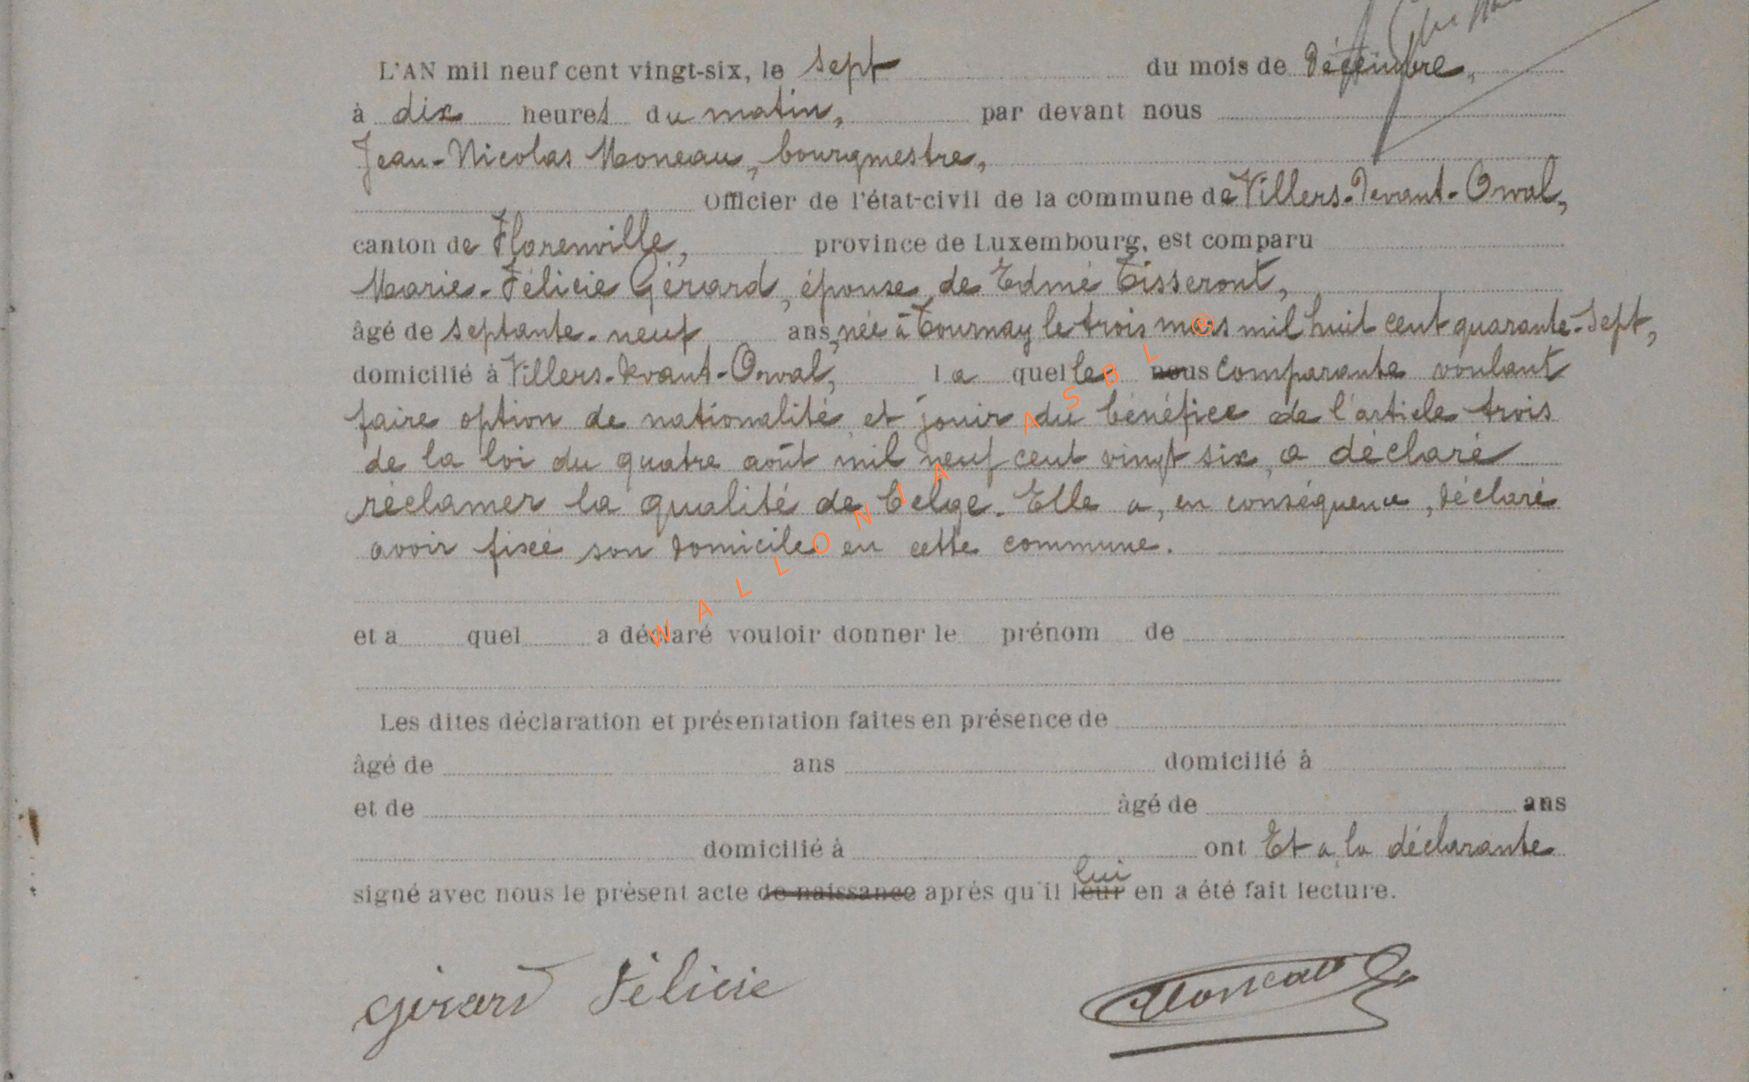 L'AN mil neuf cent vingt-six, le sept du mois de Décembre,
à dix heures du matin, par devant nous
Jean-Nicolas Moneau, bourgmestre,
Officier de l'état-civil de la commune de Villers-Devant-Orval,
canton de Florenville, province de Luxembourg, est comparu
Marie-Félicie Gérard, épouse de Edmé Tisseront,
âgé de septante-neuf ans, née à Tournay le trois mars mil huit cent quarante-sept,
domicilié à Villers-Devant-Orval, la quelle nous comparante voulant
faire option de nationalité et jouir du bénéfice de l'article trois
de la loi du quatre août mil neuf cent vingt six, a déclaré
réclamer la qualité de belge. Elle a, en conséquence, déclaré
avoir fixé son domicile en cette commune.
et a quel a déclaré vouloir donner le prénom de
Les dites déclaration et présentation faites en présence de
âgé de ans domicilié à
et de âgé de ans
domicilié à ont Et a la déclarante
lui
signé avec nous le présent acte de naissance après qu'il leur en a été fait lecture.
Gérard Félicie Moneau
WALLONIA ASBL ©